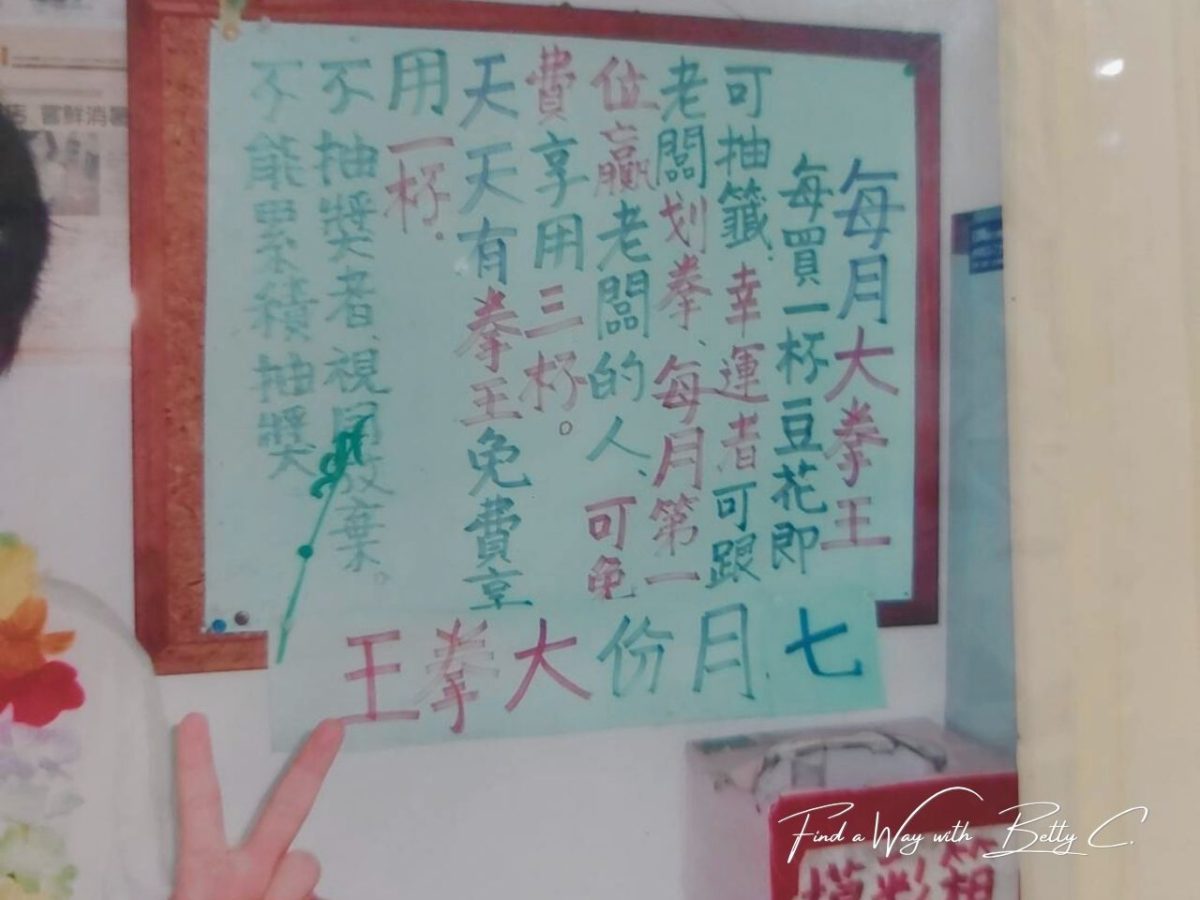 每月大拳王
每買一杯豆花即
可抽籤．幸運者可跟
老闆划拳、每月第一
位贏老闆的人、可免
費享用三杯。
天天有拳王免費享
用一杯．
不抽獎者、視同放棄。
不能累積抽獎
七月份大拳王
嘗鮮消暑
摸彩箱
Find a Way with Betty C.